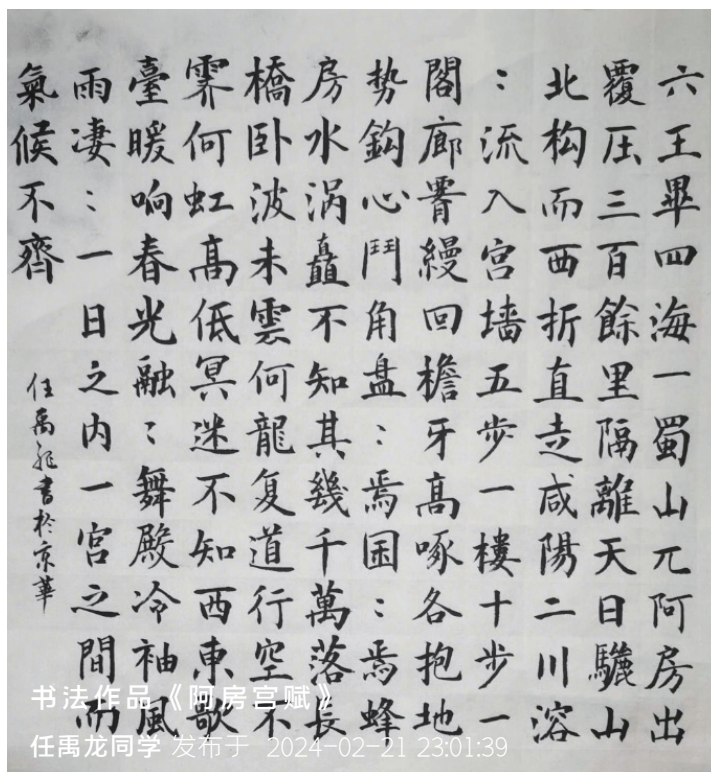 六王畢四海一蜀山兀阿房出
覆压三百餘里隔離天日驪山
北构而西折直走咸陽二川溶
：流入宫墙五步一樓十步一
閣廊縵回檐牙高啄各抱地
势鈎心鬥角盘：焉囷：焉蜂
房水涡矗不知其幾千萬落長
橋卧波未雲何龍复道行空不
霁何虹高低冥迷不知西東歌
臺暖响春光融：舞殿冷袖風
雨凄：一日之内一宫之間而
氣候不齊
任禹龙書於京華
书法作品《阿房宫赋》
任禹龙同学 发布于 2024-02-21 23:01:39